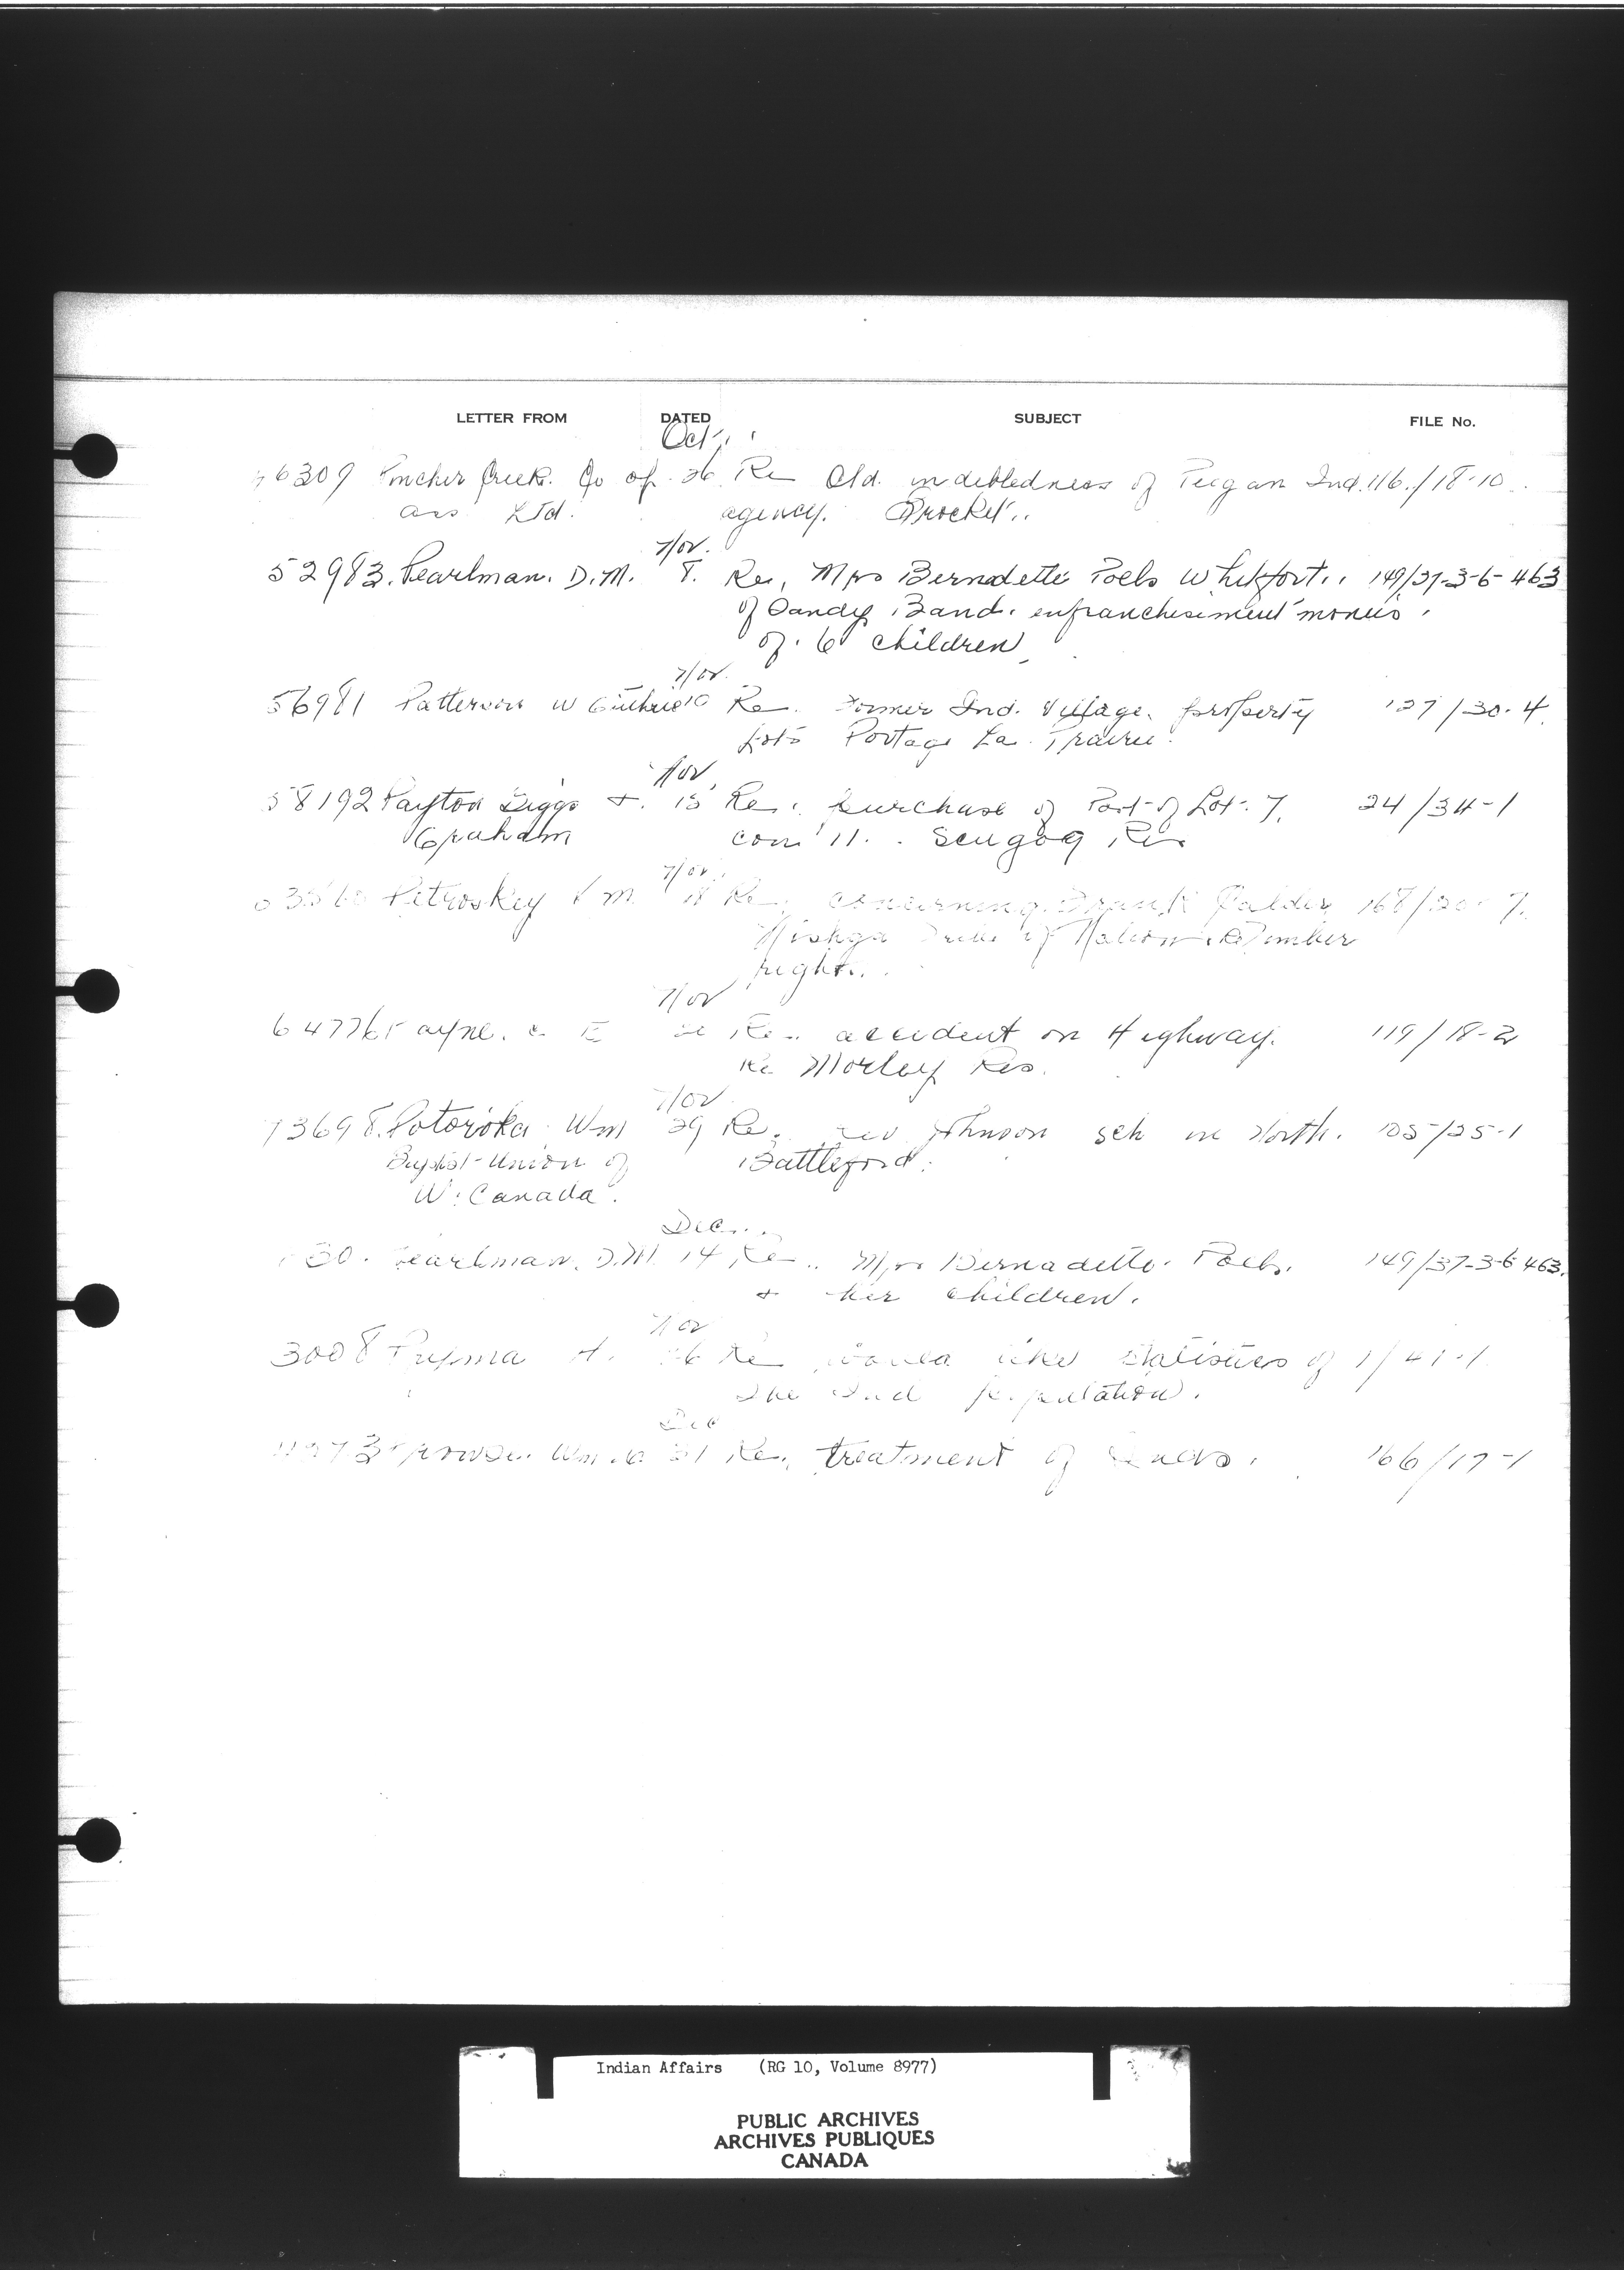 LETTER FROM DATED SUBJECT FILE No.
Oct.
46309 Pincher Creek. Co op. 26 Re Old. indebtedness of Peigan Ind. 116./18-10
ass Ltd. agency. Brocket..
Nov.
52983. Pearlman. D.M. 8. Re, Mrs Bernadette Poels Whitford.. 149/37-3-6-463
of Sandy Band. enfranchisement monies
of. 6 children
Nov.
56981 Patterson W Guthrie 10 Re. Former Ind. Village. property 127/30-4
Lots Portage La. Prairie.
Nov
58192 Payton Biggs &. 15 Re. purchase of Part of Lot. 7, 24/34-1
Graham con 11. Scugog Res
Nov.
Petroskey M. 18 Re, concerning. Frank Calder, 168/20-7.
Nishga Tribe of Nation. Re Timber
rights.
Nov
64776 Payne. E Re.. accident on Highway. 119/18-2
Re Morley Res.
Nov
73698. Potoroka. Wm 29 Re. Johnson sch in North. 105/25-1
Baptist Union of Battleford.
W. Canada.
Dec..
30. Pearlman. D.M. 14 Re.. Mrs Bernadette. Poels. 149/37-3-6-463.
& her children.
Nov
3008 26 Re would like statistics of 1/41-1
the Ind population.
Dec
Prowse. Wm. 31 Re. treatment of 166/17-1
Indian Affairs (RG 10, Volume 8977)
PUBLIC ARCHIVES
ARCHIVES PUBLIQUES
CANADA